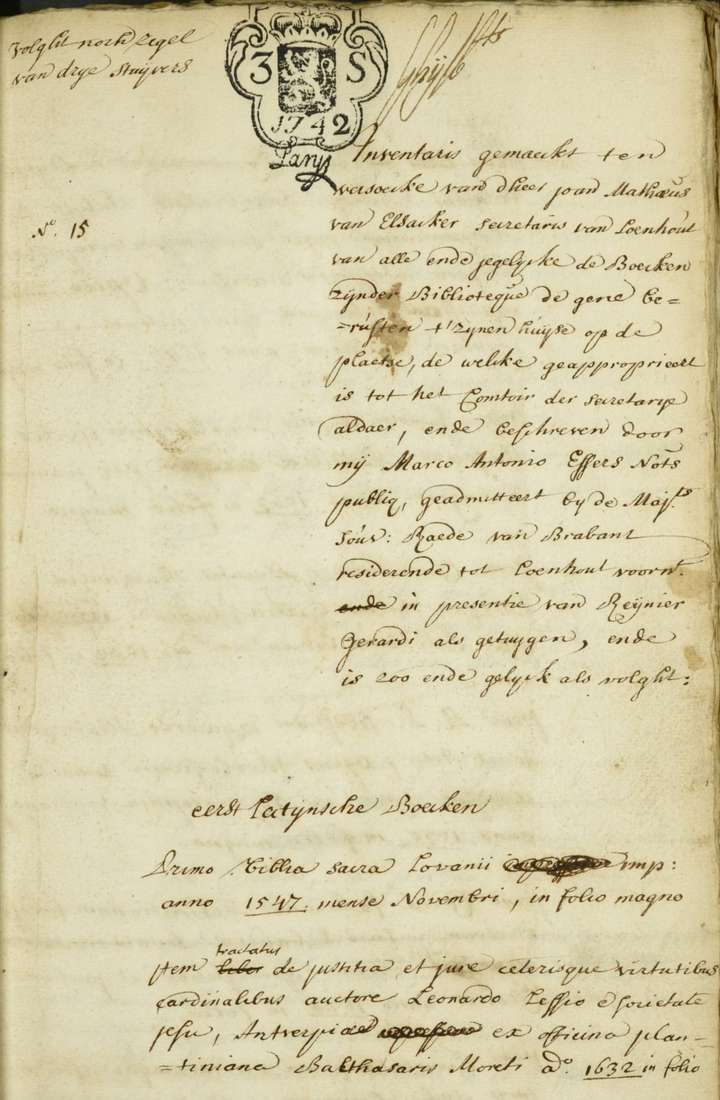 Volght noch zegel
van drye stuyvers
3 S
1742
No. 15
Inventaris gemaeckt ten
versoecke van dheer joan Mathæus
van Elsacker secretaris van Loenhout
van alle ende jegelycke de Boecken
zynder Biblioteque de gene be=
=rusten t'zynen huyse op de
plaetse, de welcke geapproprieert
is tot het Comtoir der secretarye
aldaer, ende beschreven door
mij Marco Antonio Effers Nots
publiq, geadmitteert by de Majts
souv: Raede van Brabant
residerende tot Loenhout voornt.
ende in presentie van Reynier
Gerardi als getuygen, ende
is zoo ende gelyck als volght:
eerst Latynsche Boecken
Primo Biblia sacra Lovanii imp:
anno 1547. mense Novembri, in folio magno
tractatus
jtem liber de justitia et jure celerisque virtutibus
cardinalibus auctore Leonardo Lessio è societate
jesu, Antverpiae ex officina plan=
=tiniana Balthasaris Moreti ao. 1632 in folio